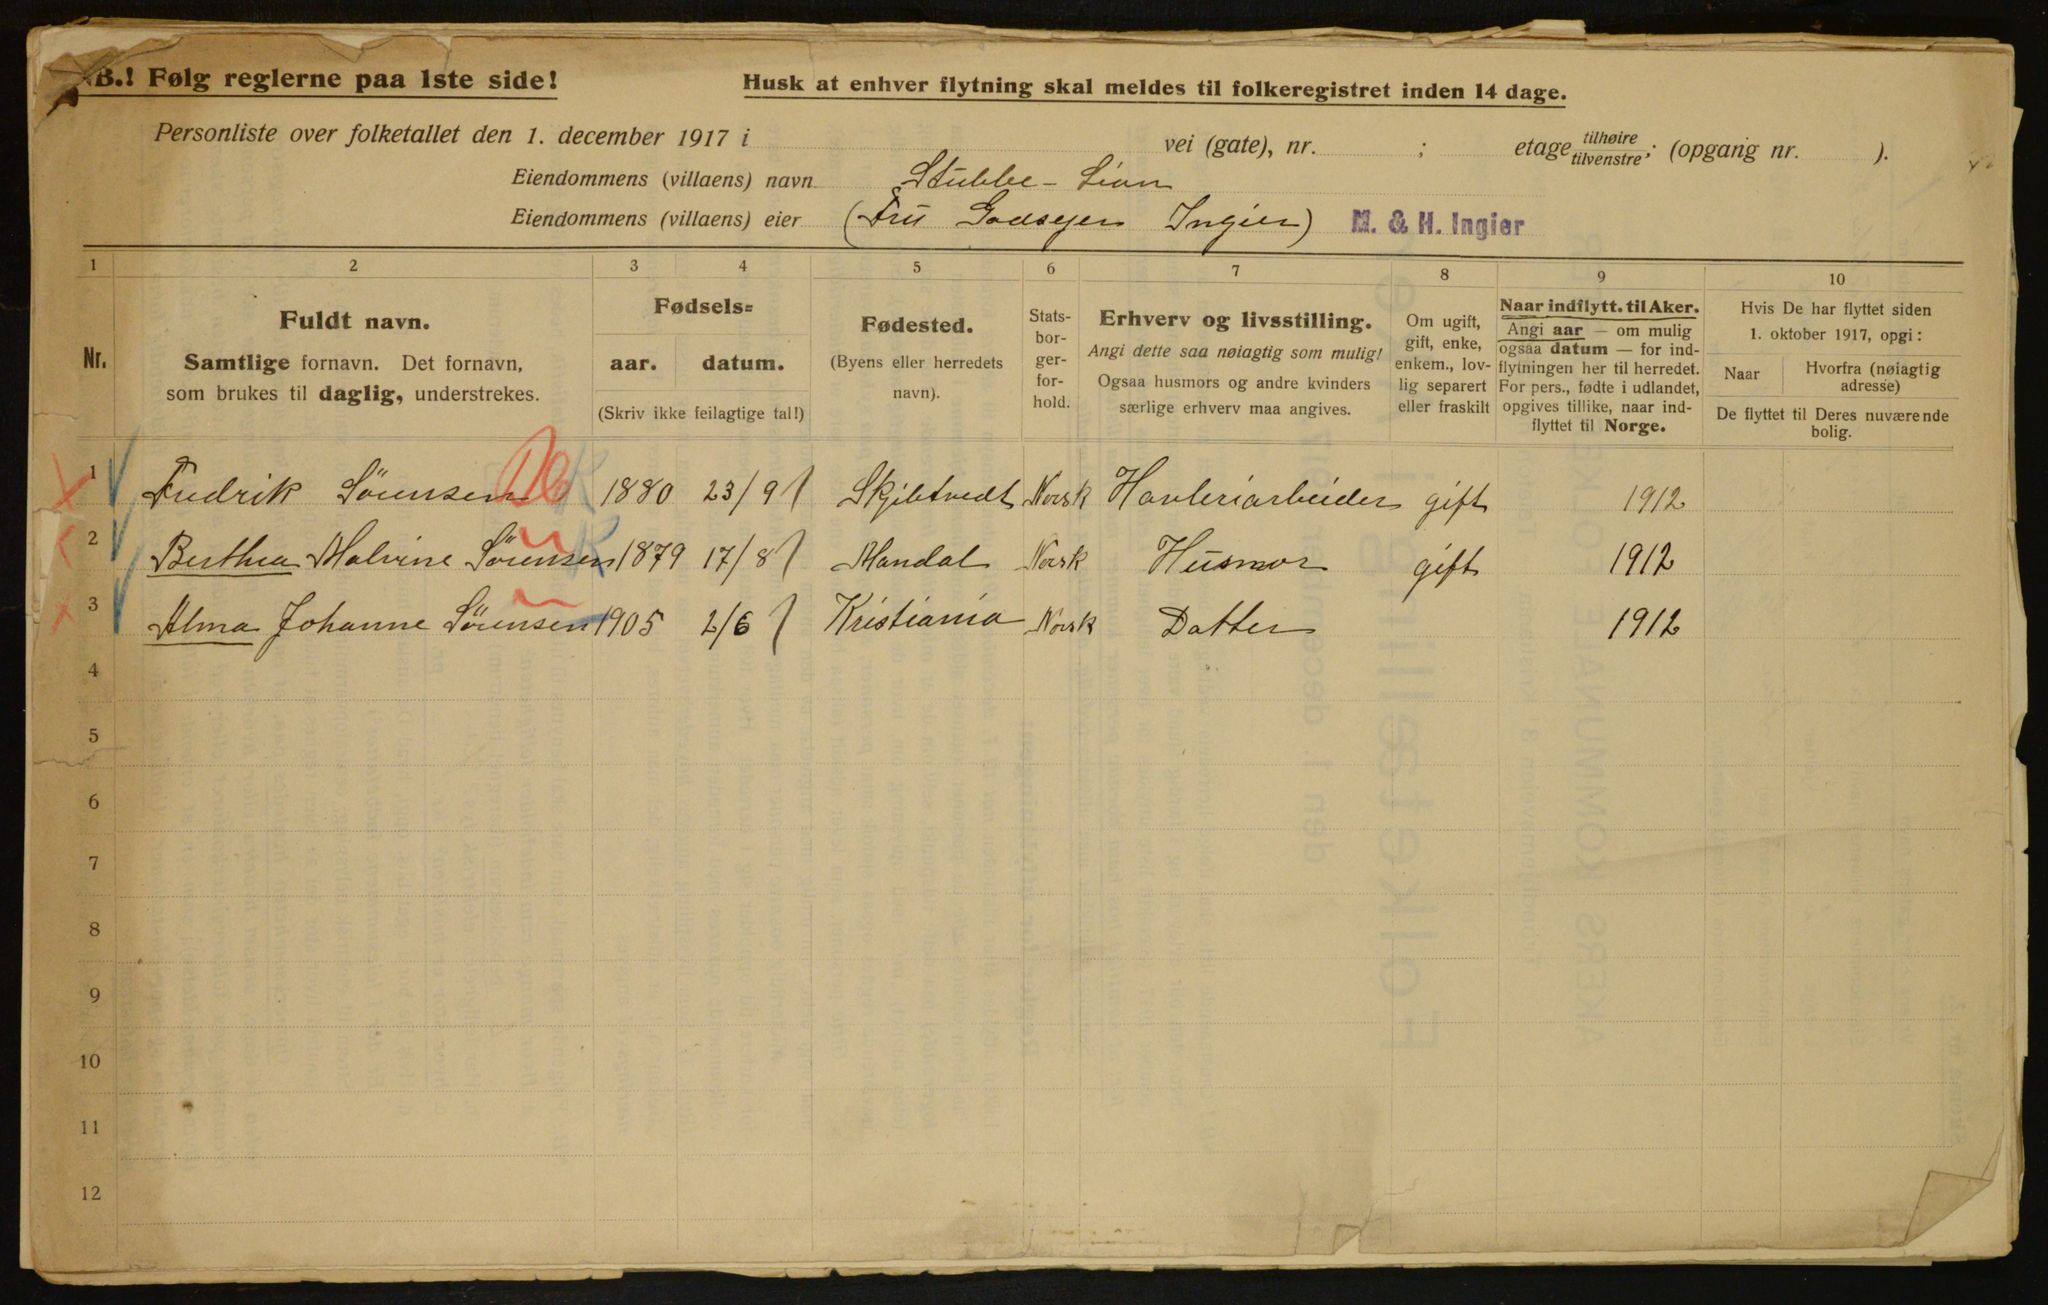 NB.! Følg reglerne paa 1ste side!
Husk at enhver flytning skal meldes til folkeregistret inden 14 dage.
Personliste over folketallet den 1. december 1917 i vei (gate), nr. ; etage tilhøire tilvenstre; (opgang nr. ).
Eiendommens (villaens) navn Stubbe-Lian
Eiendommens (villaens) eier (Fru Godsejer Ingier) M. & H. Ingier
1 2 3 4 5 6 7 8 9 10
Nr.
Fuldt navn.
Samtlige fornavn. Det fornavn,
som brukes til daglig, understrekes.
Fødsels=
aar. datum.
(Skriv ikke feilagtige tal!)
Fødested.
(Byens eller herredets
navn).
Stats-
bor-
ger-
for-
hold.
Erhverv og livsstilling.
Angi dette saa nøiagtig som mulig!
Ogsaa husmors og andre kvinders
særlige erhverv maa angives.
Om ugift,
gift, enke,
enkem., lov-
lig separert
eller fraskilt
Naar indflytt. til Aker.
Angi aar — om mulig
ogsaa datum — for ind-
flytningen her til herredet.
For pers., fødte i udlandet,
opgives tillike, naar ind-
flyttet til Norge.
Hvis De har flyttet siden
1. oktober 1917, opgi:
Naar
Hvorfra (nøiagtig
adresse)
De flyttet til Deres nuværende
bolig.
1 Fredrik Sörensen 1880 23/9 Skjibtvedt Norsk Høvleriarbeider gift 1912
2 Berthea Malvine Sörensen 1879 17/8 Mandal Norsk Husmor gift 1912
3 Alma Johanne Sörensen 1905 2/6 Kristiania Norsk Datter 1912
4
5
6
7
8
9
10
11
12